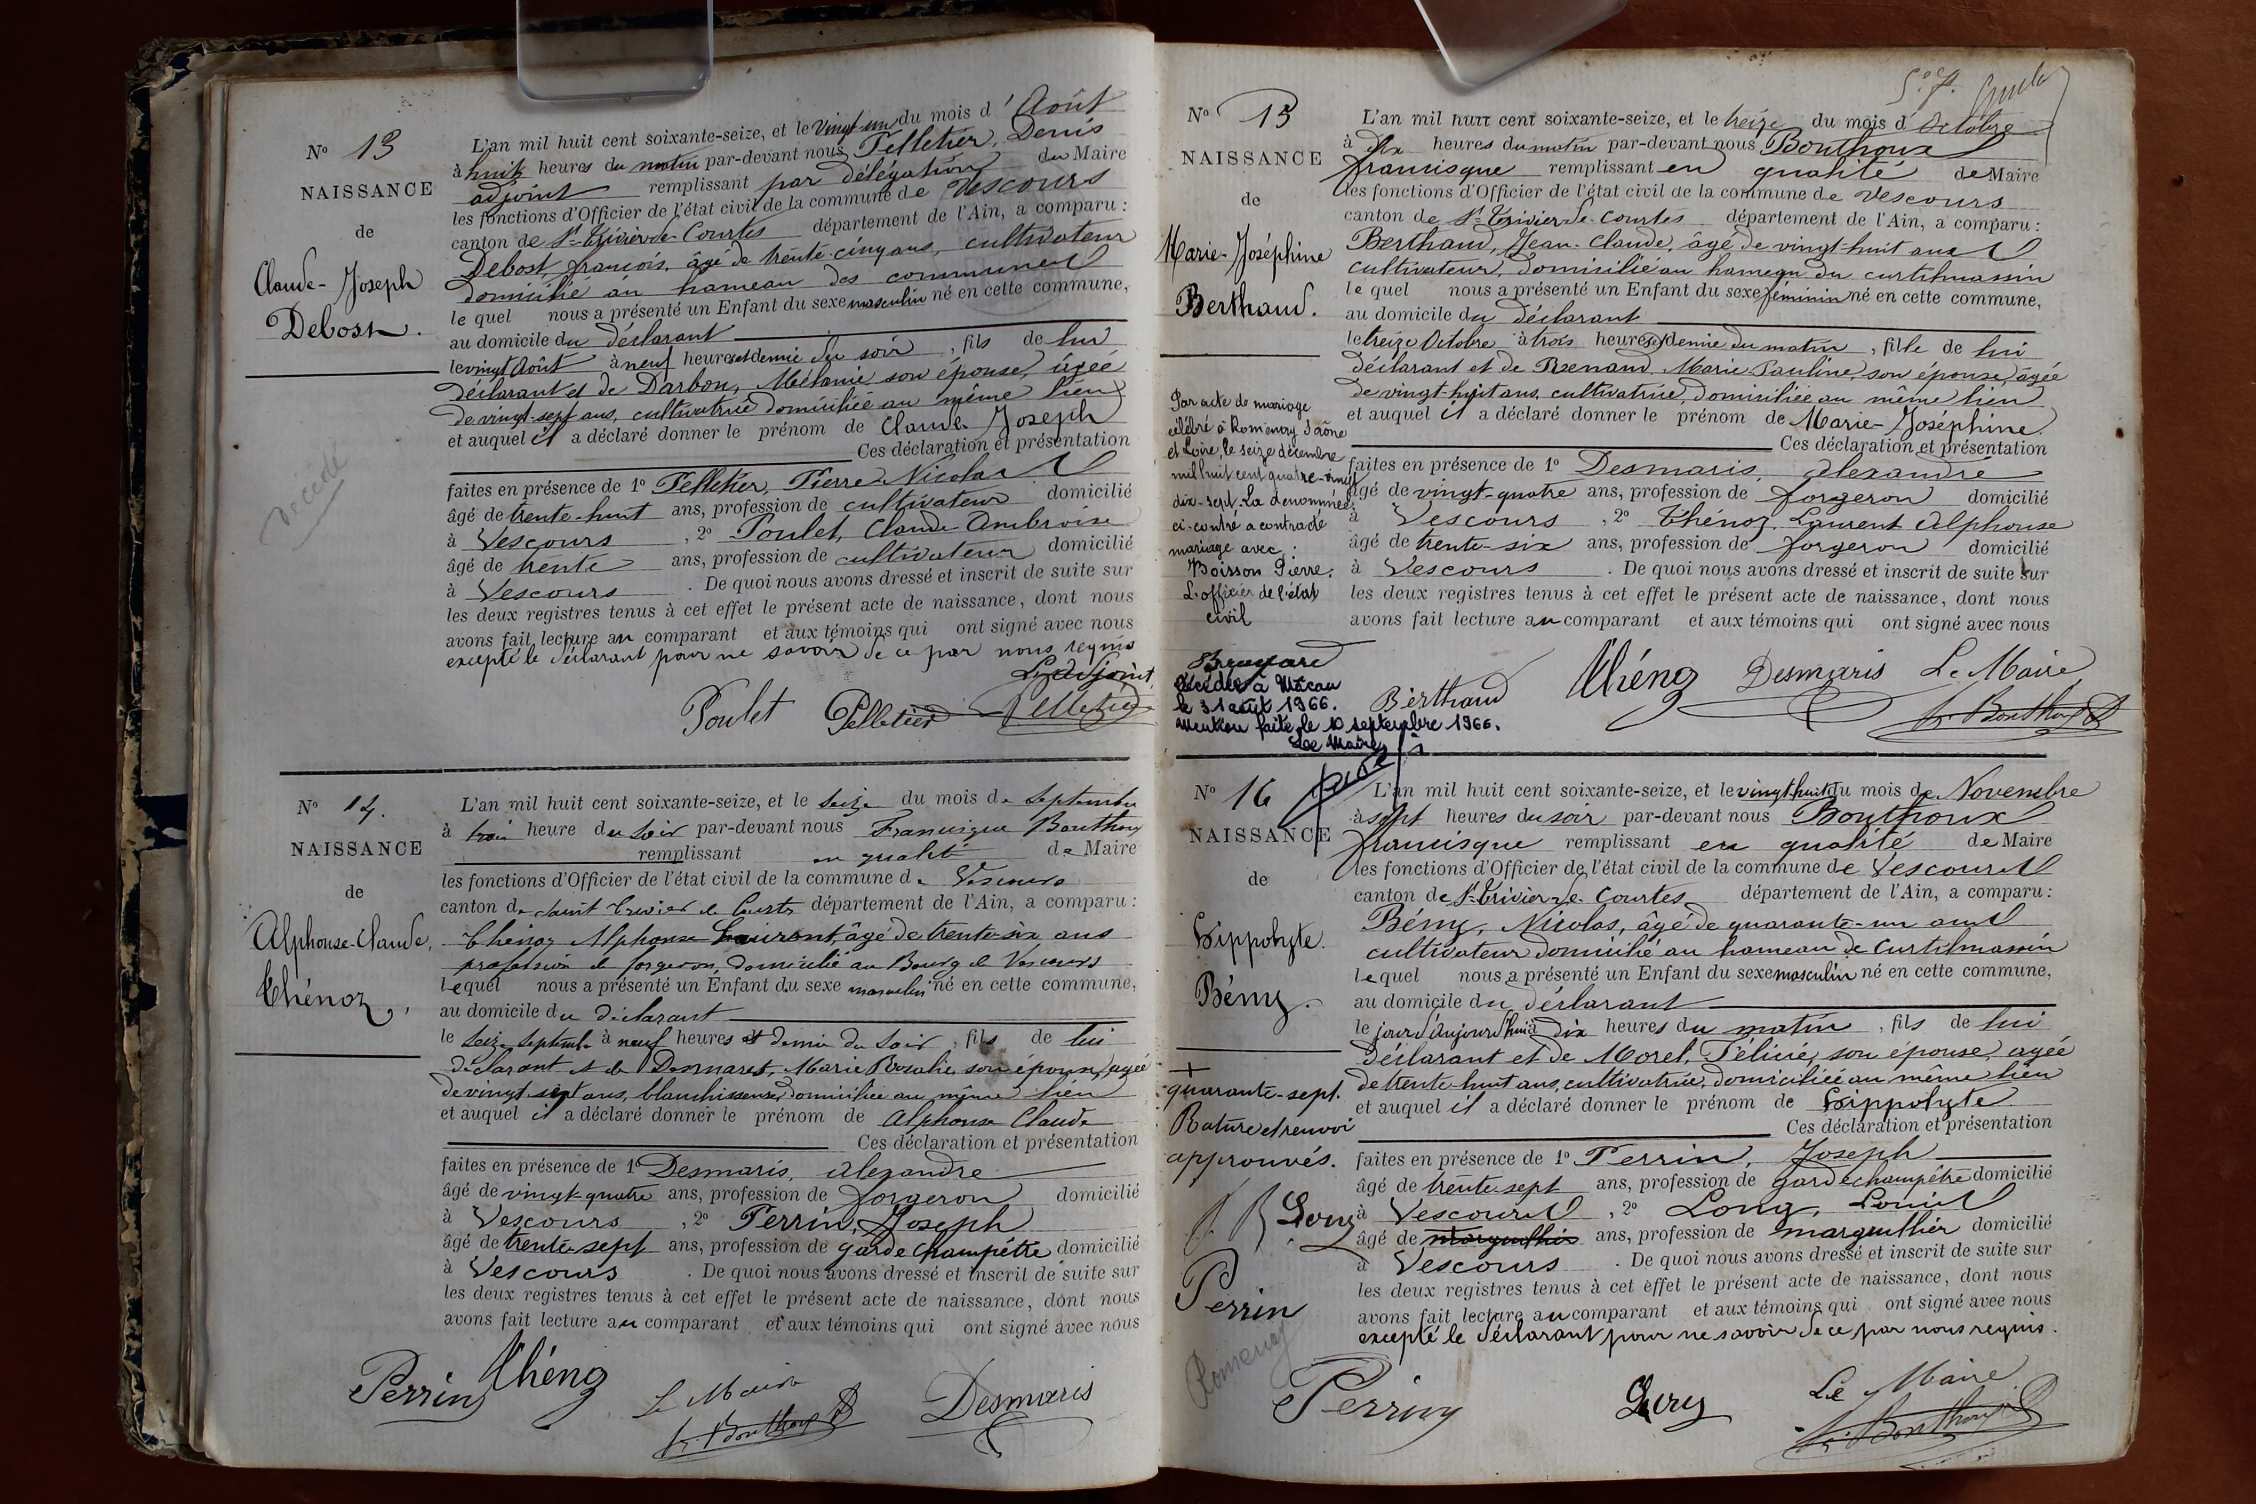 N° 13
NAISSANCE
de
Claude-Joseph
Debost.
décédé
L'an mil huit cent soixante-seize, et le vingt-un du mois d'Août
à huit heures du matin par-devant nous Pelletier, Denis
adjoint remplissant par délégation du Maire
les fonctions d'Officier de l'état civil de la commune de Vescours
canton de St-Trivier-de-Courtes département de l'Ain, a comparu :
Debost, françois, âgé de trente-cinq ans, cultivateur
domicilié au hameau des communes
le quel nous a présenté un Enfant du sexe masculin né en cette commune,
au domicile du déclarant
le vingt Août à neuf heures et demie du soir, fils de lui
déclarant et de Darbon, Mélanie son épouse, âgée
de vingt-sept ans, cultivatrice domiciliée au même lieu
et auquel il a déclaré donner le prénom de Claude Joseph
Ces déclaration et présentation
faites en présence de 1° Pelletier, Pierre Nicolas
âgé de trente-huit ans, profession de cultivateur domicilié
à Vescours, 2° Poulet, Claude Ambroise
âgé de trente ans, profession de cultivateur domicilié
à Vescours. De quoi nous avons dressé et inscrit de suite sur
les deux registres tenus à cet effet le présent acte de naissance, dont nous
avons fait lecture au comparant et aux témoins qui ont signé avec nous
excepté le déclarant pour ne savoir de ce par nous requis
L'adjoint,
Poulet Pelletier Pelletier
N° 14.
NAISSANCE
de
Alphonse-Claude,
Thénoz,
L'an mil huit cent soixante-seize, et le seize du mois de Septembre
à trois heure du soir par-devant nous Francisque Bouthoux
remplissant en qualité de Maire
les fonctions d'Officier de l'état civil de la commune de Vescours
canton de Saint Trivier de Courtes département de l'Ain, a comparu :
Thénoz Alphonse Laurent, âgé de trente-six ans
profession de forgeron, domicilié au Bourg de Vescours
Lequel nous a présenté un Enfant du sexe masculin né en cette commune,
au domicile du déclarant
le seize septembre à neuf heures et demie du soir, fils de lui
déclarant et de Desmares, Marie Rosalie son épouse, âgée
de vingt sept ans, blanchisseuse, domiciliée au même lieu
et auquel il a déclaré donner le prénom de Alphonse Claude
Ces déclaration et présentation
faites en présence de 1° Desmaris, Alexandre
âgé de vingt-quatre ans, profession de forgeron domicilié
à Vescours, 2° Perrin, Joseph
âgé de trente-sept ans, profession de garde champêtre domicilié
à Vescours. De quoi nous avons dressé et inscrit de suite sur
les deux registres tenus à cet effet le présent acte de naissance, dont nous
avons fait lecture au comparant et aux témoins qui ont signé avec nous
Perrin Thénoz Le Maire Desmaris
fr. Bouthoux
N° 15
NAISSANCE
de
Marie-Joséphine
Berthaud.
Par acte de mariage
célébré à Romenay Saône
et Loire, le seize décembre
mil huit cent quatre-vingt
dix-sept. La dénommée
ci-contre a contracté
mariage avec :
Boisson Pierre.
L'officier de l'état
civil
Décédée à Mâcon
le 31 août 1966.
Mention faite le 10 septembre 1966.
Le Maire,
L'an mil huit cent soixante-seize, et le treize du mois d'Octobre
à dix heures du matin par-devant nous Bouthoux
francisque remplissant en qualité de Maire
les fonctions d'Officier de l'état civil de la commune de Vescours
canton de St-Trivier-de-Courtes département de l'Ain, a comparu :
Berthaud, Jean-Claude, âgé de vingt-huit ans
cultivateur, domicilié au hameau du curtilmassin
le quel nous a présenté un Enfant du sexe féminin né en cette commune,
au domicile du déclarant
le treize Octobre à trois heures et demie du matin, fille de lui
déclarant et de Renaud, Marie Pauline, son épouse, âgée
de vingt-huit ans, cultivatrice, domiciliée au même lieu
et auquel il a déclaré donner le prénom de Marie-Joséphine.
Ces déclaration et présentation
faites en présence de 1° Desmaris, alexandre
âgé de vingt-quatre ans, profession de forgeron domicilié
à Vescours, 2° Thénoz, Laurent Alphonse
âgé de trente-six ans, profession de forgeron domicilié
à Vescours. De quoi nous avons dressé et inscrit de suite sur
les deux registres tenus à cet effet le présent acte de naissance, dont nous
avons fait lecture au comparant et aux témoins qui ont signé avec nous
Berthaud Thénoz Desmaris Le Maire
fr. Bouthoux
N° 16
NAISSANCE
de
Hippolyte.
Bémy.
+
quarante-sept.
Rature et renvoi
approuvés.
Long
Perrin
Romenay
L'an mil huit cent soixante-seize, et le vingt-huit du mois de Novembre
à sept heures du soir par-devant nous Bouthoux
francisque remplissant en qualité de Maire
les fonctions d'Officier de l'état civil de la commune de Vescours
canton de St-Trivier-de-Courtes département de l'Ain, a comparu :
Bémy, Nicolas, âgé de quarante-un ans
cultivateur domicilié au hameau de curtilmassin
lequel nous a présenté un Enfant du sexe masculin né en cette commune,
au domicile du déclarant
le jour d'aujourd'hui à dix heures du matin, fils de lui
déclarant et de Morel, Félicie, son épouse, agée
de trente-huit ans, cultivatrice, domiciliée au même lieu
et auquel il a déclaré donner le prénom de Hippolyte
Ces déclaration et présentation
faites en présence de 1° Perrin, Joseph
âgé de trente-sept ans, profession de garde champêtre domicilié
à Vescours, 2° Long, Louis
âgé de marguillier ans, profession de marguillier domicilié
à Vescours. De quoi nous avons dressé et inscrit de suite sur
les deux registres tenus à cet effet le présent acte de naissance, dont nous
avons fait lecture au comparant et aux témoins qui ont signé avec nous
excepté le déclarant pour ne savoir de ce par nous requis.
Perrin Long Le Maire
fr. Bouthoux